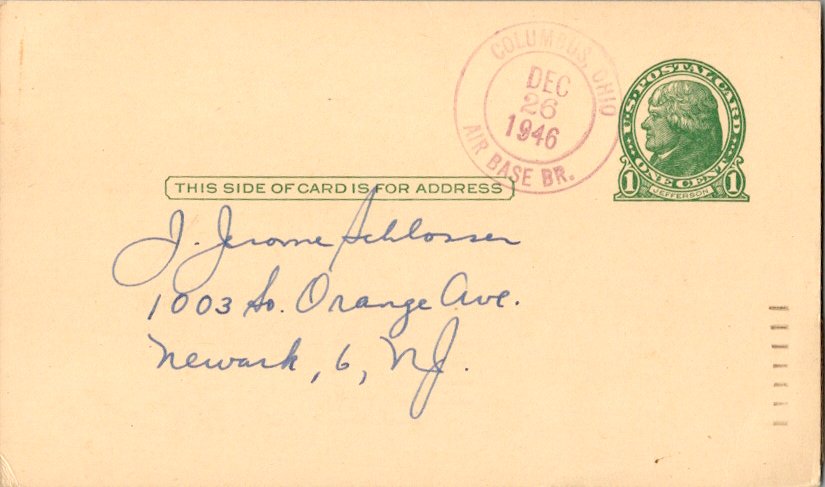 COLUMBUS, OHIO
DEC
26
1946
AIR BASE BR.
U.S. POSTAL CARD
ONE CENT
1 JEFFERSON 1
THIS SIDE OF CARD IS FOR ADDRESS
J. Jerome Schlosser
1003 So. Orange Ave.
Newark, 6, NJ.